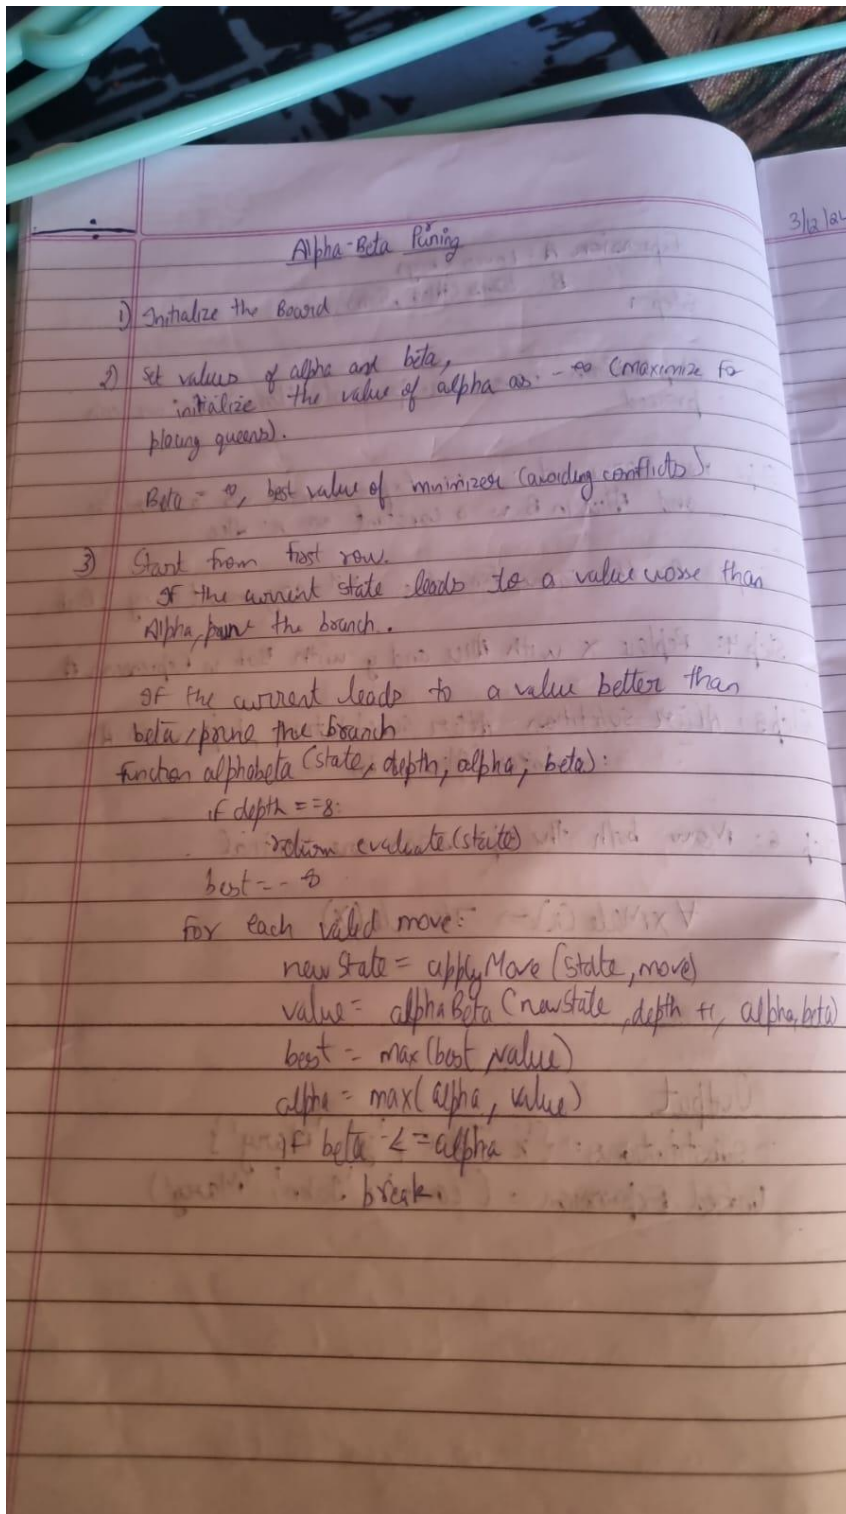 3/12/24
Alpha-Beta Puring
1) Initialize the Board
2) Set values of alpha and beta,
initialize the value of alpha as - ∞ (maximize for
placing queens).
Beta = ∞, best value of minimizer (avoiding conflicts).
3) Start from first row.
If the current state leads to a value worse than
Alpha, prune the branch.
If the current leads to a value better than
beta, prune the branch
function alphabeta (state, depth, alpha, beta):
if depth == 8:
return evaluate (state)
best = - ∞
For each valid move:
newState = applyMove (state, move)
value = alphaBeta (newstate, depth +1, alpha, beta)
best = max (best, value)
alpha = max( alpha, value)
if beta <= alpha
break.